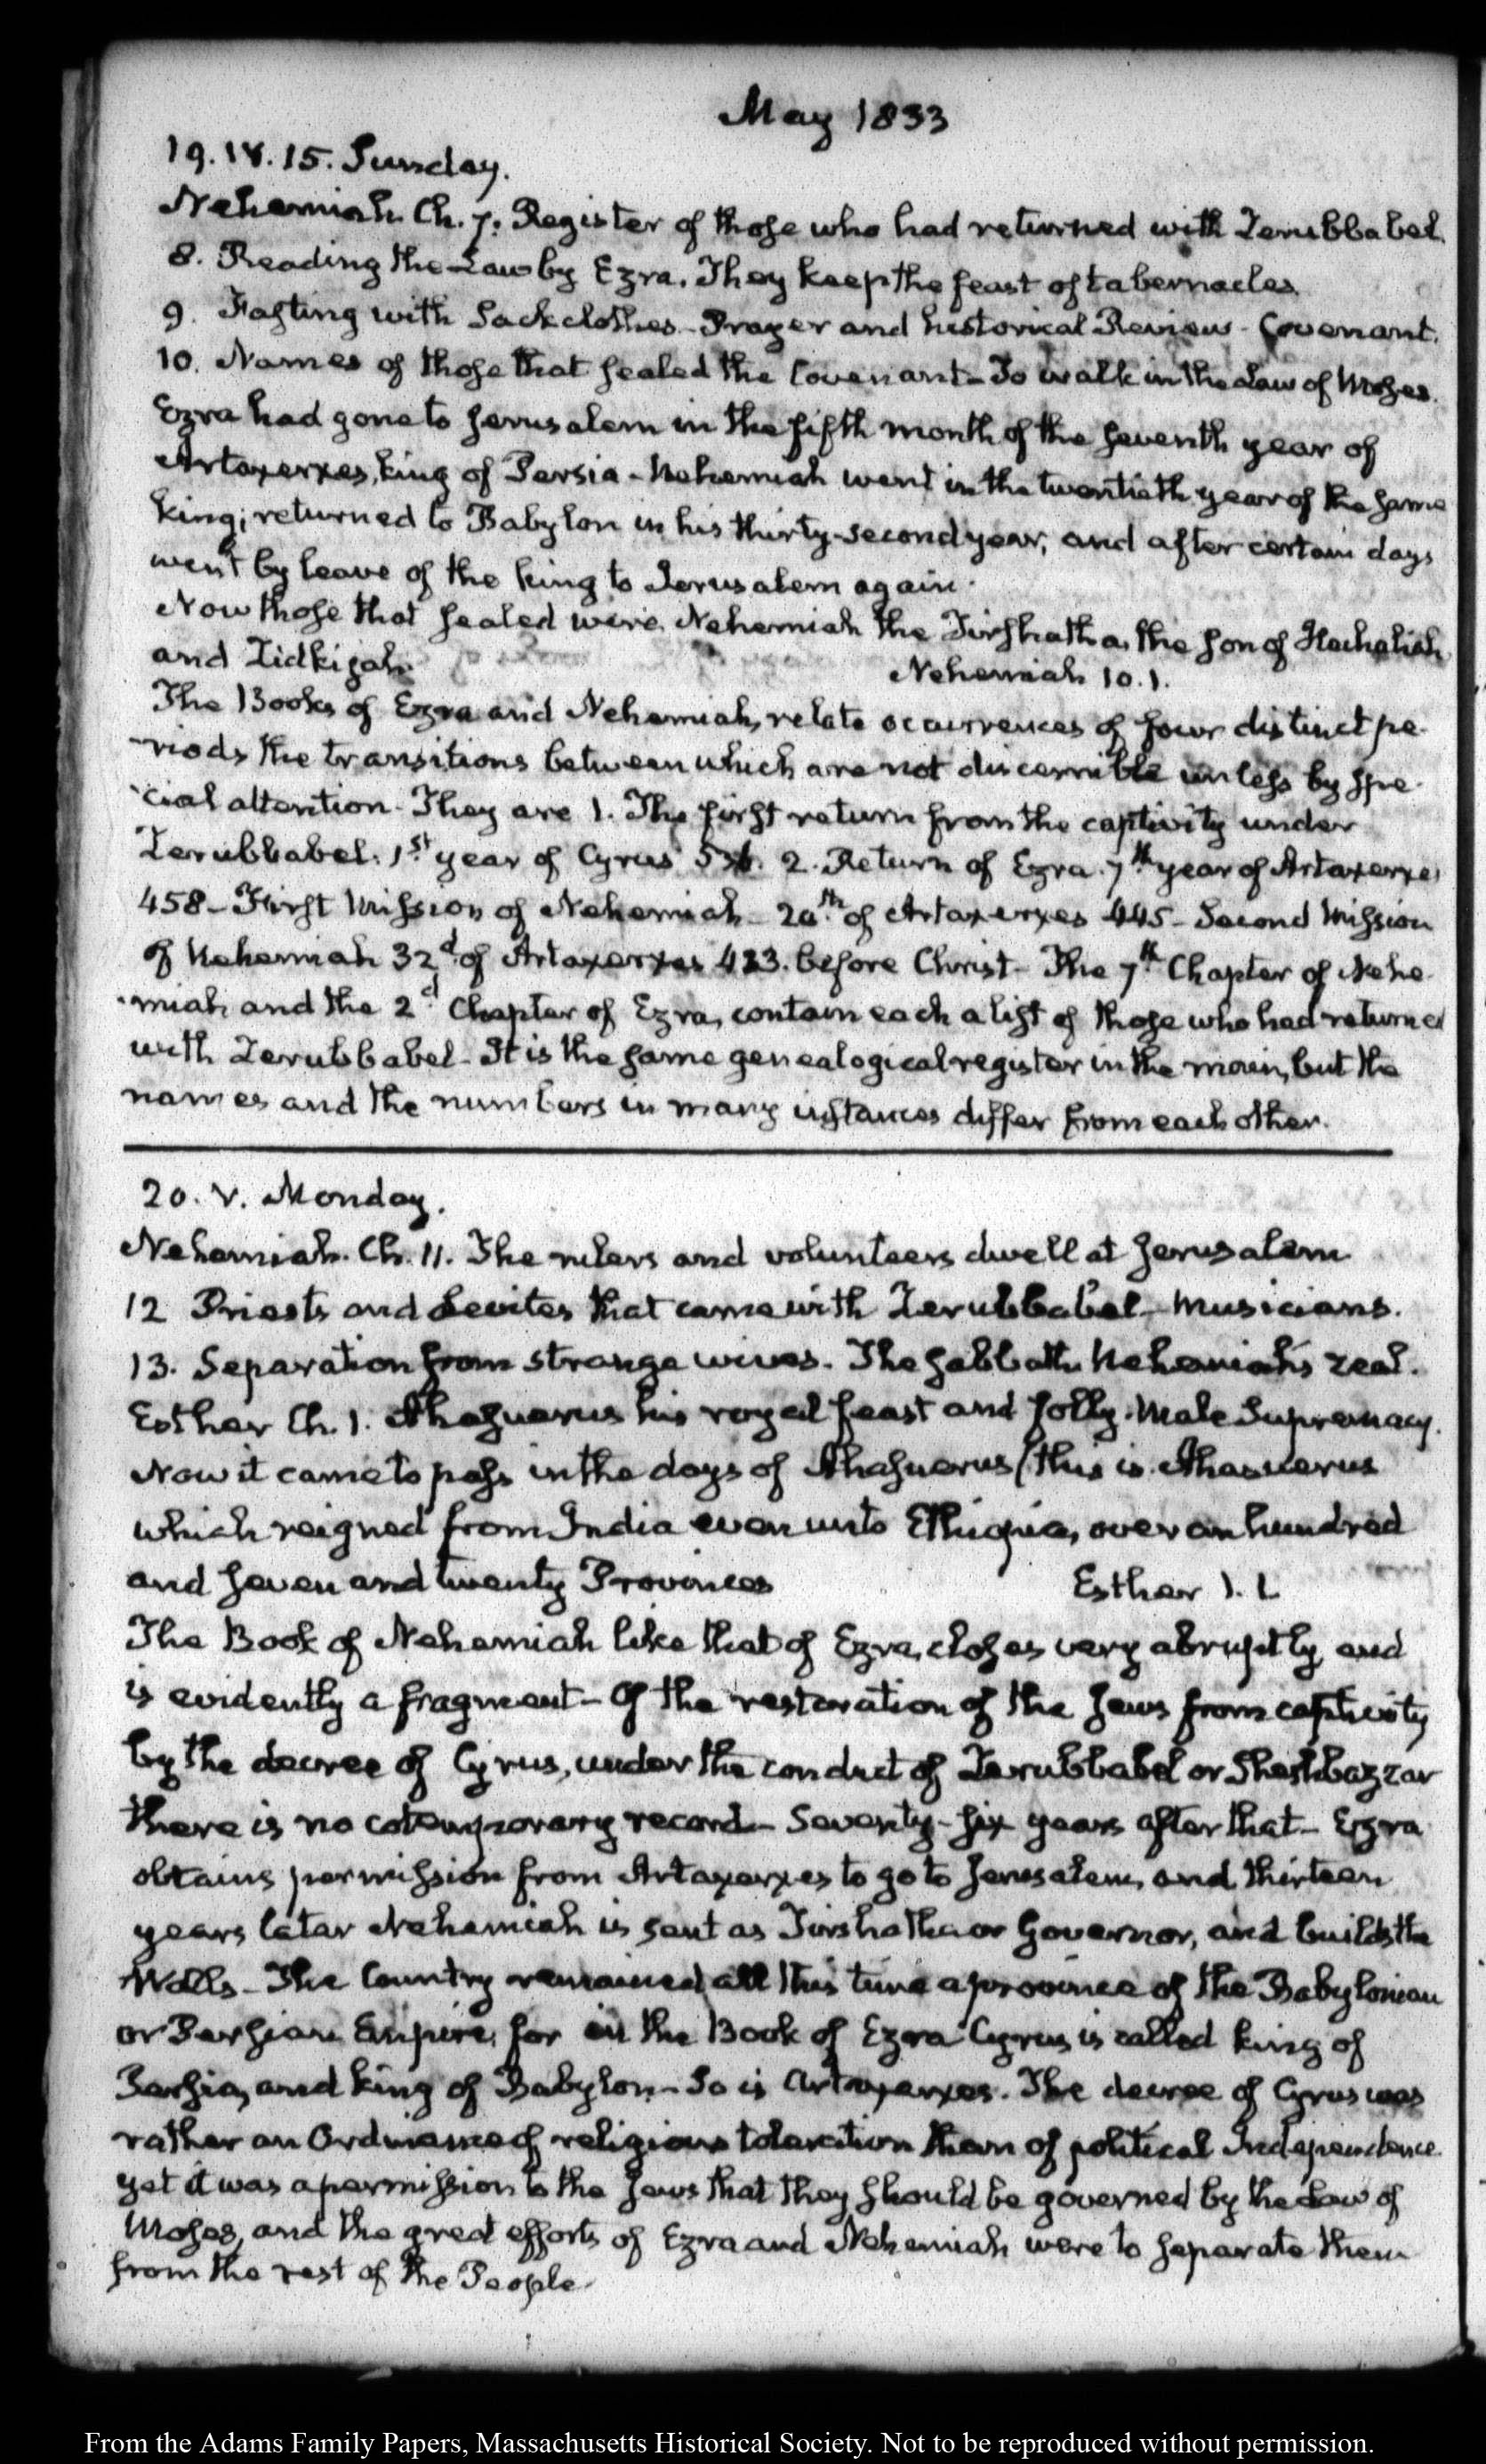 May 1833
19. IV. 15. Sunday.
Nehemiah. Ch. 7. Register of those who had returned with Zerubbabel.
8. Reading the Law by Ezra. They keep the feast of tabernacles.
9. Fasting with Sackclothes - Prayer and historical Review - Covenant.
10. Names of those that sealed the Covenant - To walk in the Law of Moses.
Ezra had gone to Jerusalem in the fifth month of the seventh year of
Artaxerxes, king of Persia - Nehemiah went in the twentieth year of the same
King; returned to Babylon in his thirty-second year, and after certain days
went by leave of the king to Jerusalem again.
Now those that sealed were Nehemiah the Tirshatha, the son of Hachaliah,
and Zidkijah.
Nehemiah 10. 1.
The Books of Ezra and Nehemiah, relate occurrences of four distinct pe-
-riods the transitions between which are not discernible unless by spe-
-cial attention - They are 1. The first return from the captivity under
Zerubbabel. 1st year of Cyrus 536. 2. Return of Ezra. 7th year of Artaxerxes
458 - First Mission of Nehemiah - 20th of Artaxerxes 445 - Second Mission
of Nehemiah 32d of Artaxerxes 433. before Christ - The 7th Chapter of Nehe-
-miah and the 2d Chapter of Ezra, contain each a list of those who had returned
with Zerubbabel - It is the same genealogical register in the main, but the
names and the numbers in many instances differ from each other.
20. V. Monday.
Nehemiah. Ch. 11. The rulers and volunteers dwell at Jerusalem
12 Priests and Levites that came with Zerubbabel - Musicians.
13. Separation from strange wives. The Sabbath. Nehemiah's zeal.
Esther Ch. 1. Ahasuerus his royal feast and folly. Male Supremacy.
Now it came to pass in the days of Ahasuerus (this is Ahasuerus
which reigned from India even unto Ethiopia, over an hundred
and seven and twenty Provinces
Esther 1. 1.
The Book of Nehemiah like that of Ezra, closes very abruptly, and
is evidently a fragment - Of the restoration of the Jews from captivity
by the decree of Cyrus, under the conduct of Zerubbabel or Sheshbazzar
there is no cotemporary record - Seventy-six years after that - Ezra
obtains permission from Artaxerxes to go to Jerusalem, and thirteen
years later Nehemiah is sent as Tirshatha or Governor, and builds the
Walls - The Country remained all this time a province of the Babylonian
or Persian Empire, for in the Book of Ezra Cyrus is called king of
Persia, and king of Babylon - So is Artaxerxes. The decree of Cyrus was
rather an Ordinance of religious toleration than of political Independence.
yet it was a permission to the Jews that they should be governed by the Law of
Moses, and the great efforts of Ezra and Nehemiah were to separate them
from the rest of the People.
From the Adams Family Papers, Massachusetts Historical Society. Not to be reproduced without permission.